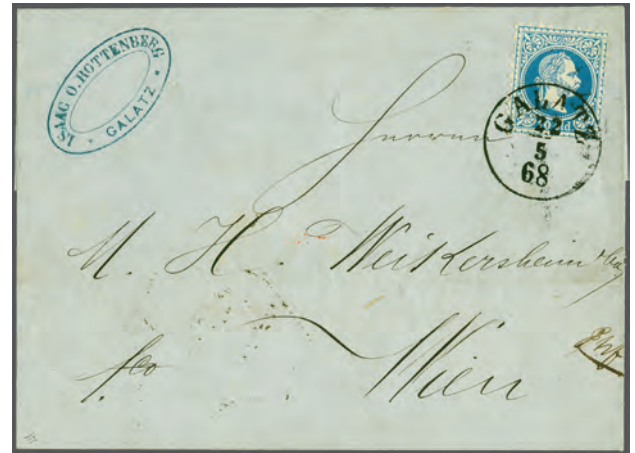 ISAAC O. ROTTENBERG
* GALATZ *
GALATZ
22
5
68
Herrn
M. H. Weikersheim &
fco Wien